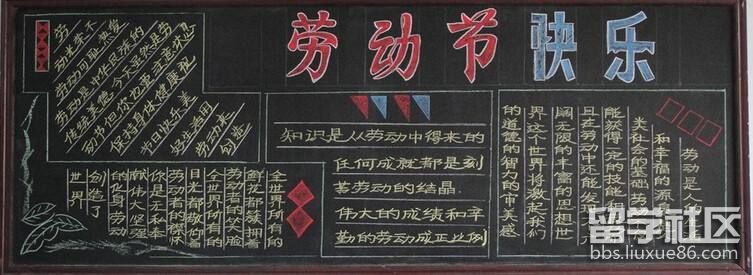 劳动节快乐
劳动光荣不
劳动同胞热爱
劳动是中华民族的
传统美德今天虽然是劳
动节但你也要注意休息
保持身体健康祝
节日快乐美
好生活用
劳动来
创造
知识是从劳动中得来的
任何成就都是刻
苦劳动的结晶
伟大的成绩和辛
勤的劳动成正比例
全世界所有的
鲜花都簇拥着
劳动者的笑脸
全世界所有的
目光都敬仰着
劳动者的襟怀
你是无私奉
献伟大坚强
的化身劳动
创造了
世界
劳动是人
和幸福的源
类社会的基础劳
能获得一定的技能
且在劳动中还能发现
阔无限的丰富的思想世
界这个世界将激起我们
的道德的智力的审美感
留学社区
bbs.liuxue86.com